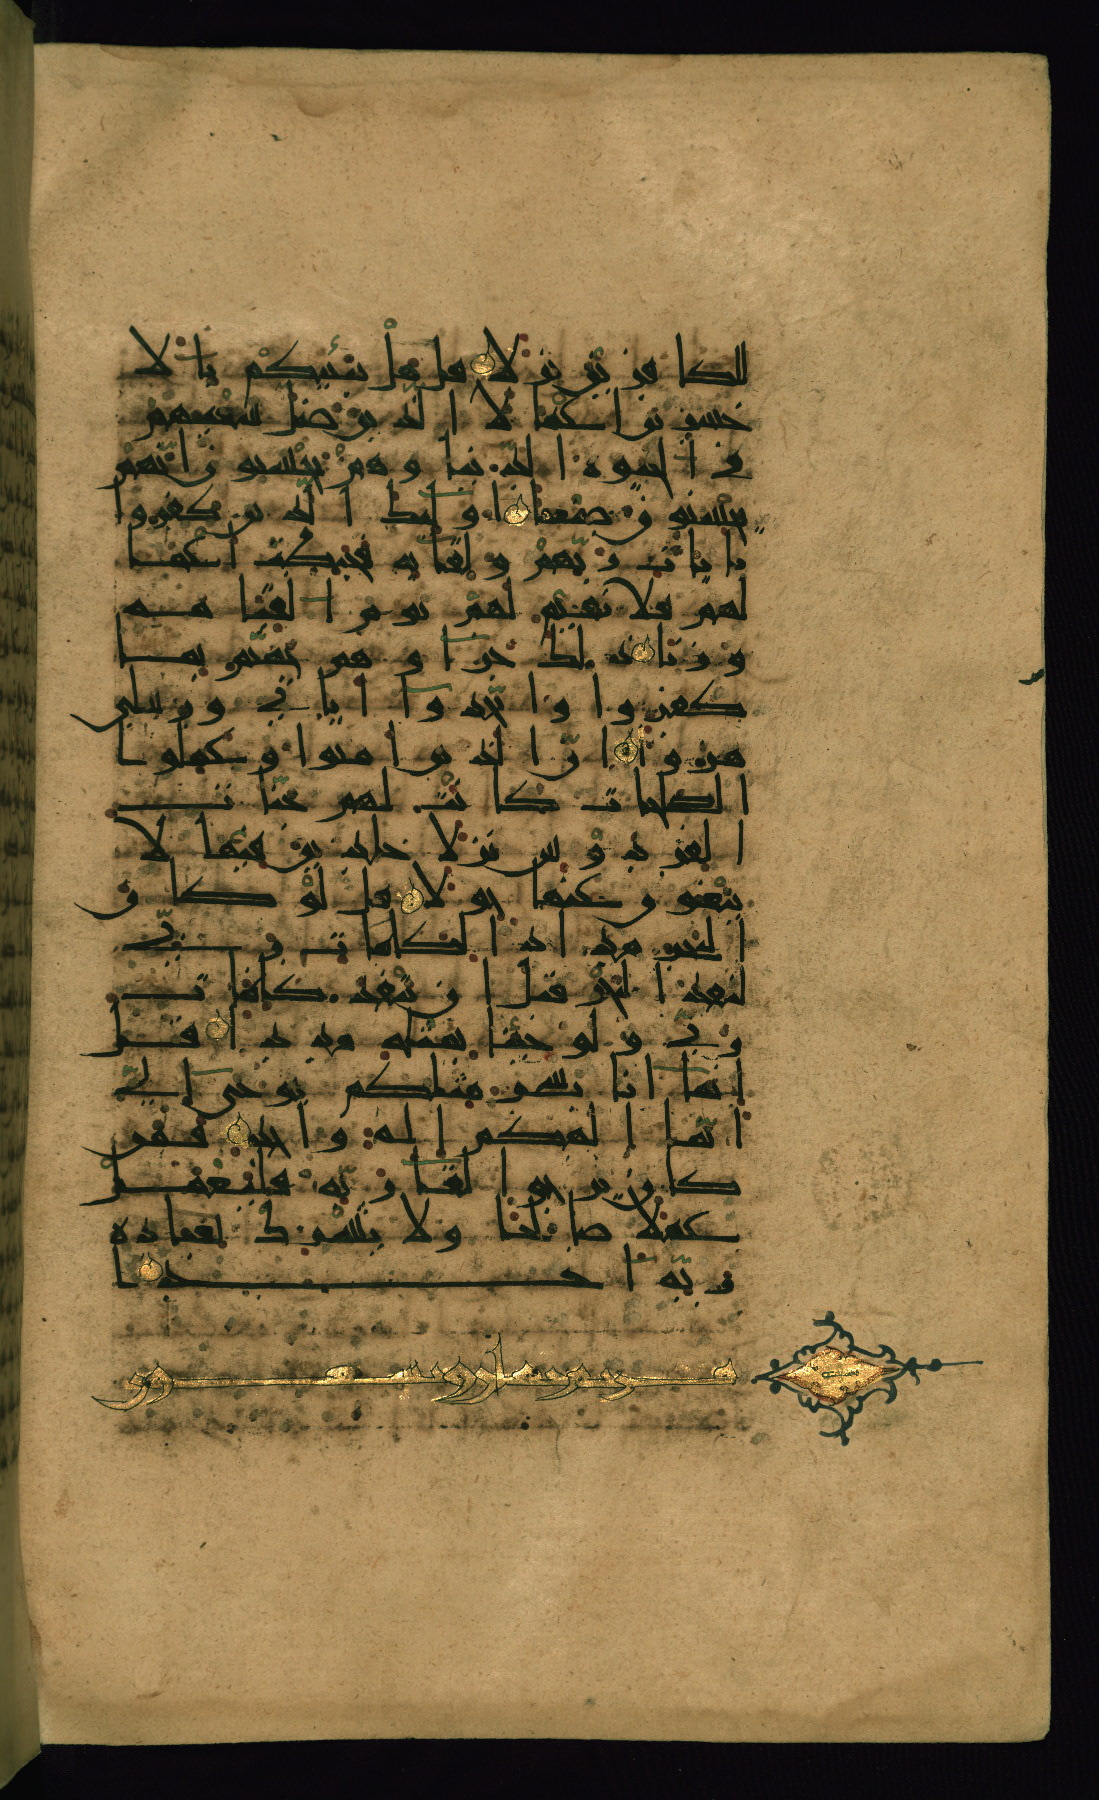 للكافرين نزلا قل هل ننبئكم بالا
خسرين اعمالا الذين ضل سعيهم
في الحيوة الدنيا وهم يحسبون انهم
يحسنون صنعا اولئك الذين كفروا
بايات ربهم ولقائه فحبطت اعما
لهم فلا نقيم لهم يوم القيامه
وزنا ذلك جزاؤهم جهنم بما
كفروا واتخذوا اياتي ورسلي
هزوا ان الذين امنوا وعملوا
الصالحات كانت لهم جنات
الفردوس نزلا خالدين فيها لا
يبغون عنها حولا قل لو كان
البحر مدادا لكلمات ربي
لنفد البحر قبل ان تنفد كلمات
ربي ولو جئنا بمثله مددا قل
انما انا بشر مثلكم يوحى الي
انما الهكم اله واحد فمن
كان يرجوا لقا ربه فليعمل
عملا صالحا ولا يشرك بعباده
ربه احدا
مريم ثمان وتسعون